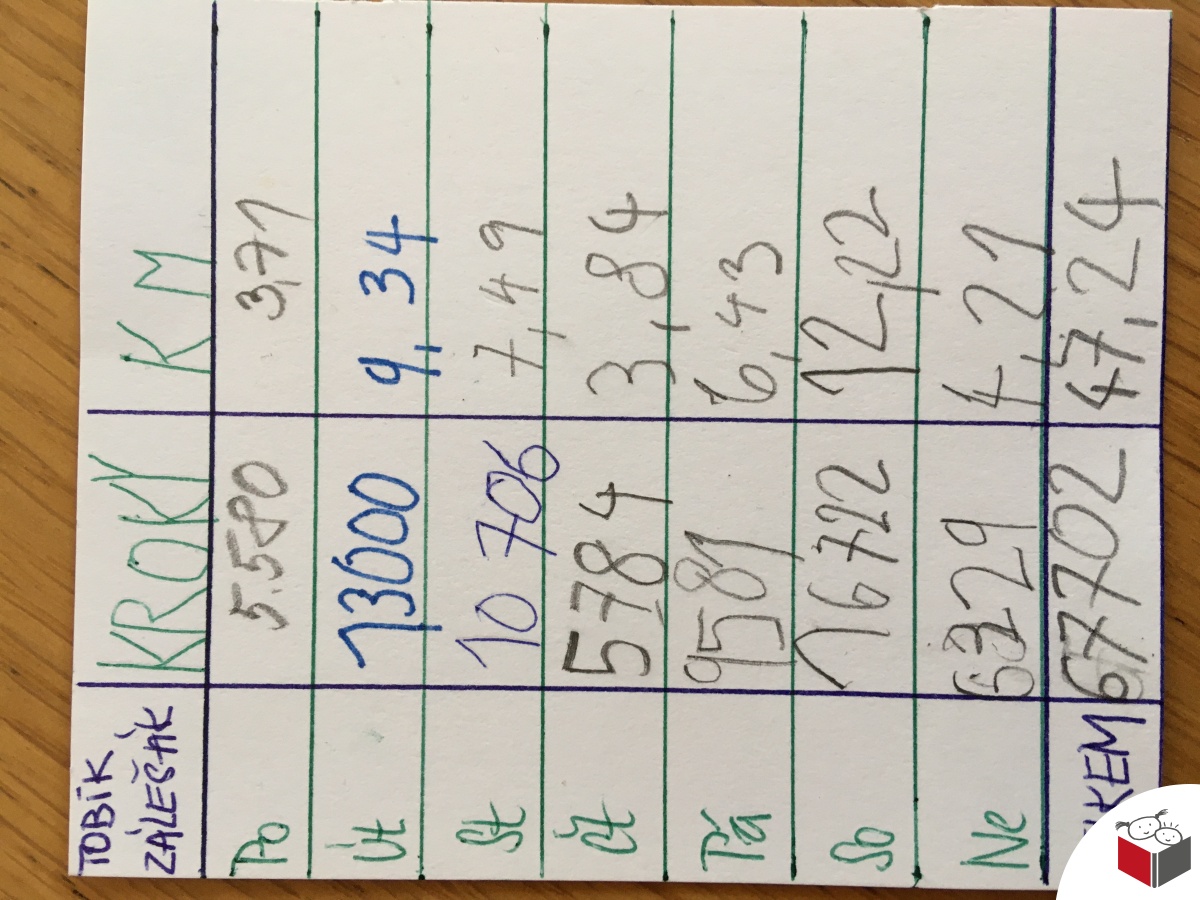 TOBÍK ZÁLEŠÁK KROKY KM
Po 5.580 3,71
Út 13000 9,34
St 10 706 7,49
Čt 5784 3,84
Pá 9581 6,43
So 16722 12,22
Ne 6329 4,21
67702 47,24